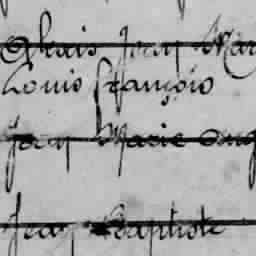 Jean Mar
Louis françois
Jean Marie Aug
Jean Baptiste